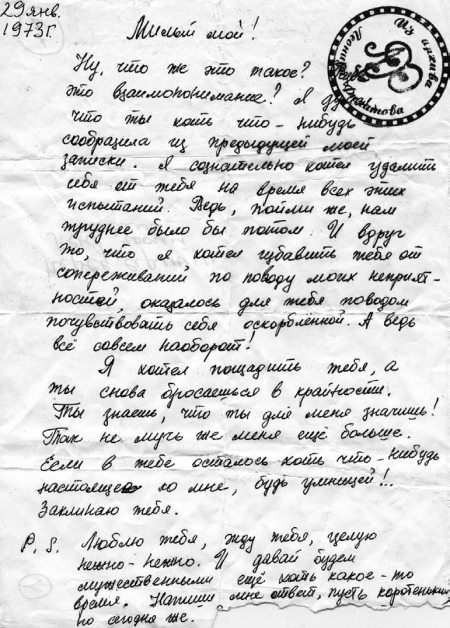 29 янв.
1973г.
Милый мой!
Ну, что же это такое?
Это взаимопонимание? Я ду
что ты хоть что-нибудь
сообразила из предыдущей моей
записки. Я сознательно хотел удалить
себя от тебя на время всех этих
испытаний. Ведь, пойми же, нам
труднее было бы потом. И вдруг
то, что я хотел избавить тебя от
сопереживаний по поводу моих неприят-
ностей, оказалось для тебя поводом
почувствовать себя оскорблённой. А ведь
всё совсем наоборот!
Я хотел пощадить тебя, а
ты снова бросаешься в крайности.
Ты знаешь, что ты для меня значишь!
Так не мучь же меня ещё больше.
Если в тебе осталось хоть что-нибудь
настоящее ко мне, будь умницей!..
Заклинаю тебя.
P.S. Люблю тебя, жду тебя, целую
нежно-нежно. И давай будем
мужественными ещё хоть какое-то
время. Напиши мне ответ, пусть коротенький
но сегодня же.
Из архива
Леонида